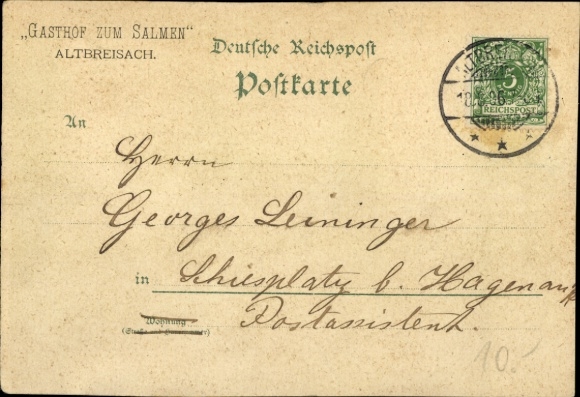 „GASTHOF ZUM SALMEN"
ALTBREISACH.
Deutsche Reichspost
Postkarte
5
REICHSPOST
An
Herrn
Georges Leininger
in Schiesplatz b. Hagenau
Postassistent.
Wohnung
(Straße und Hausnummer)
10.-